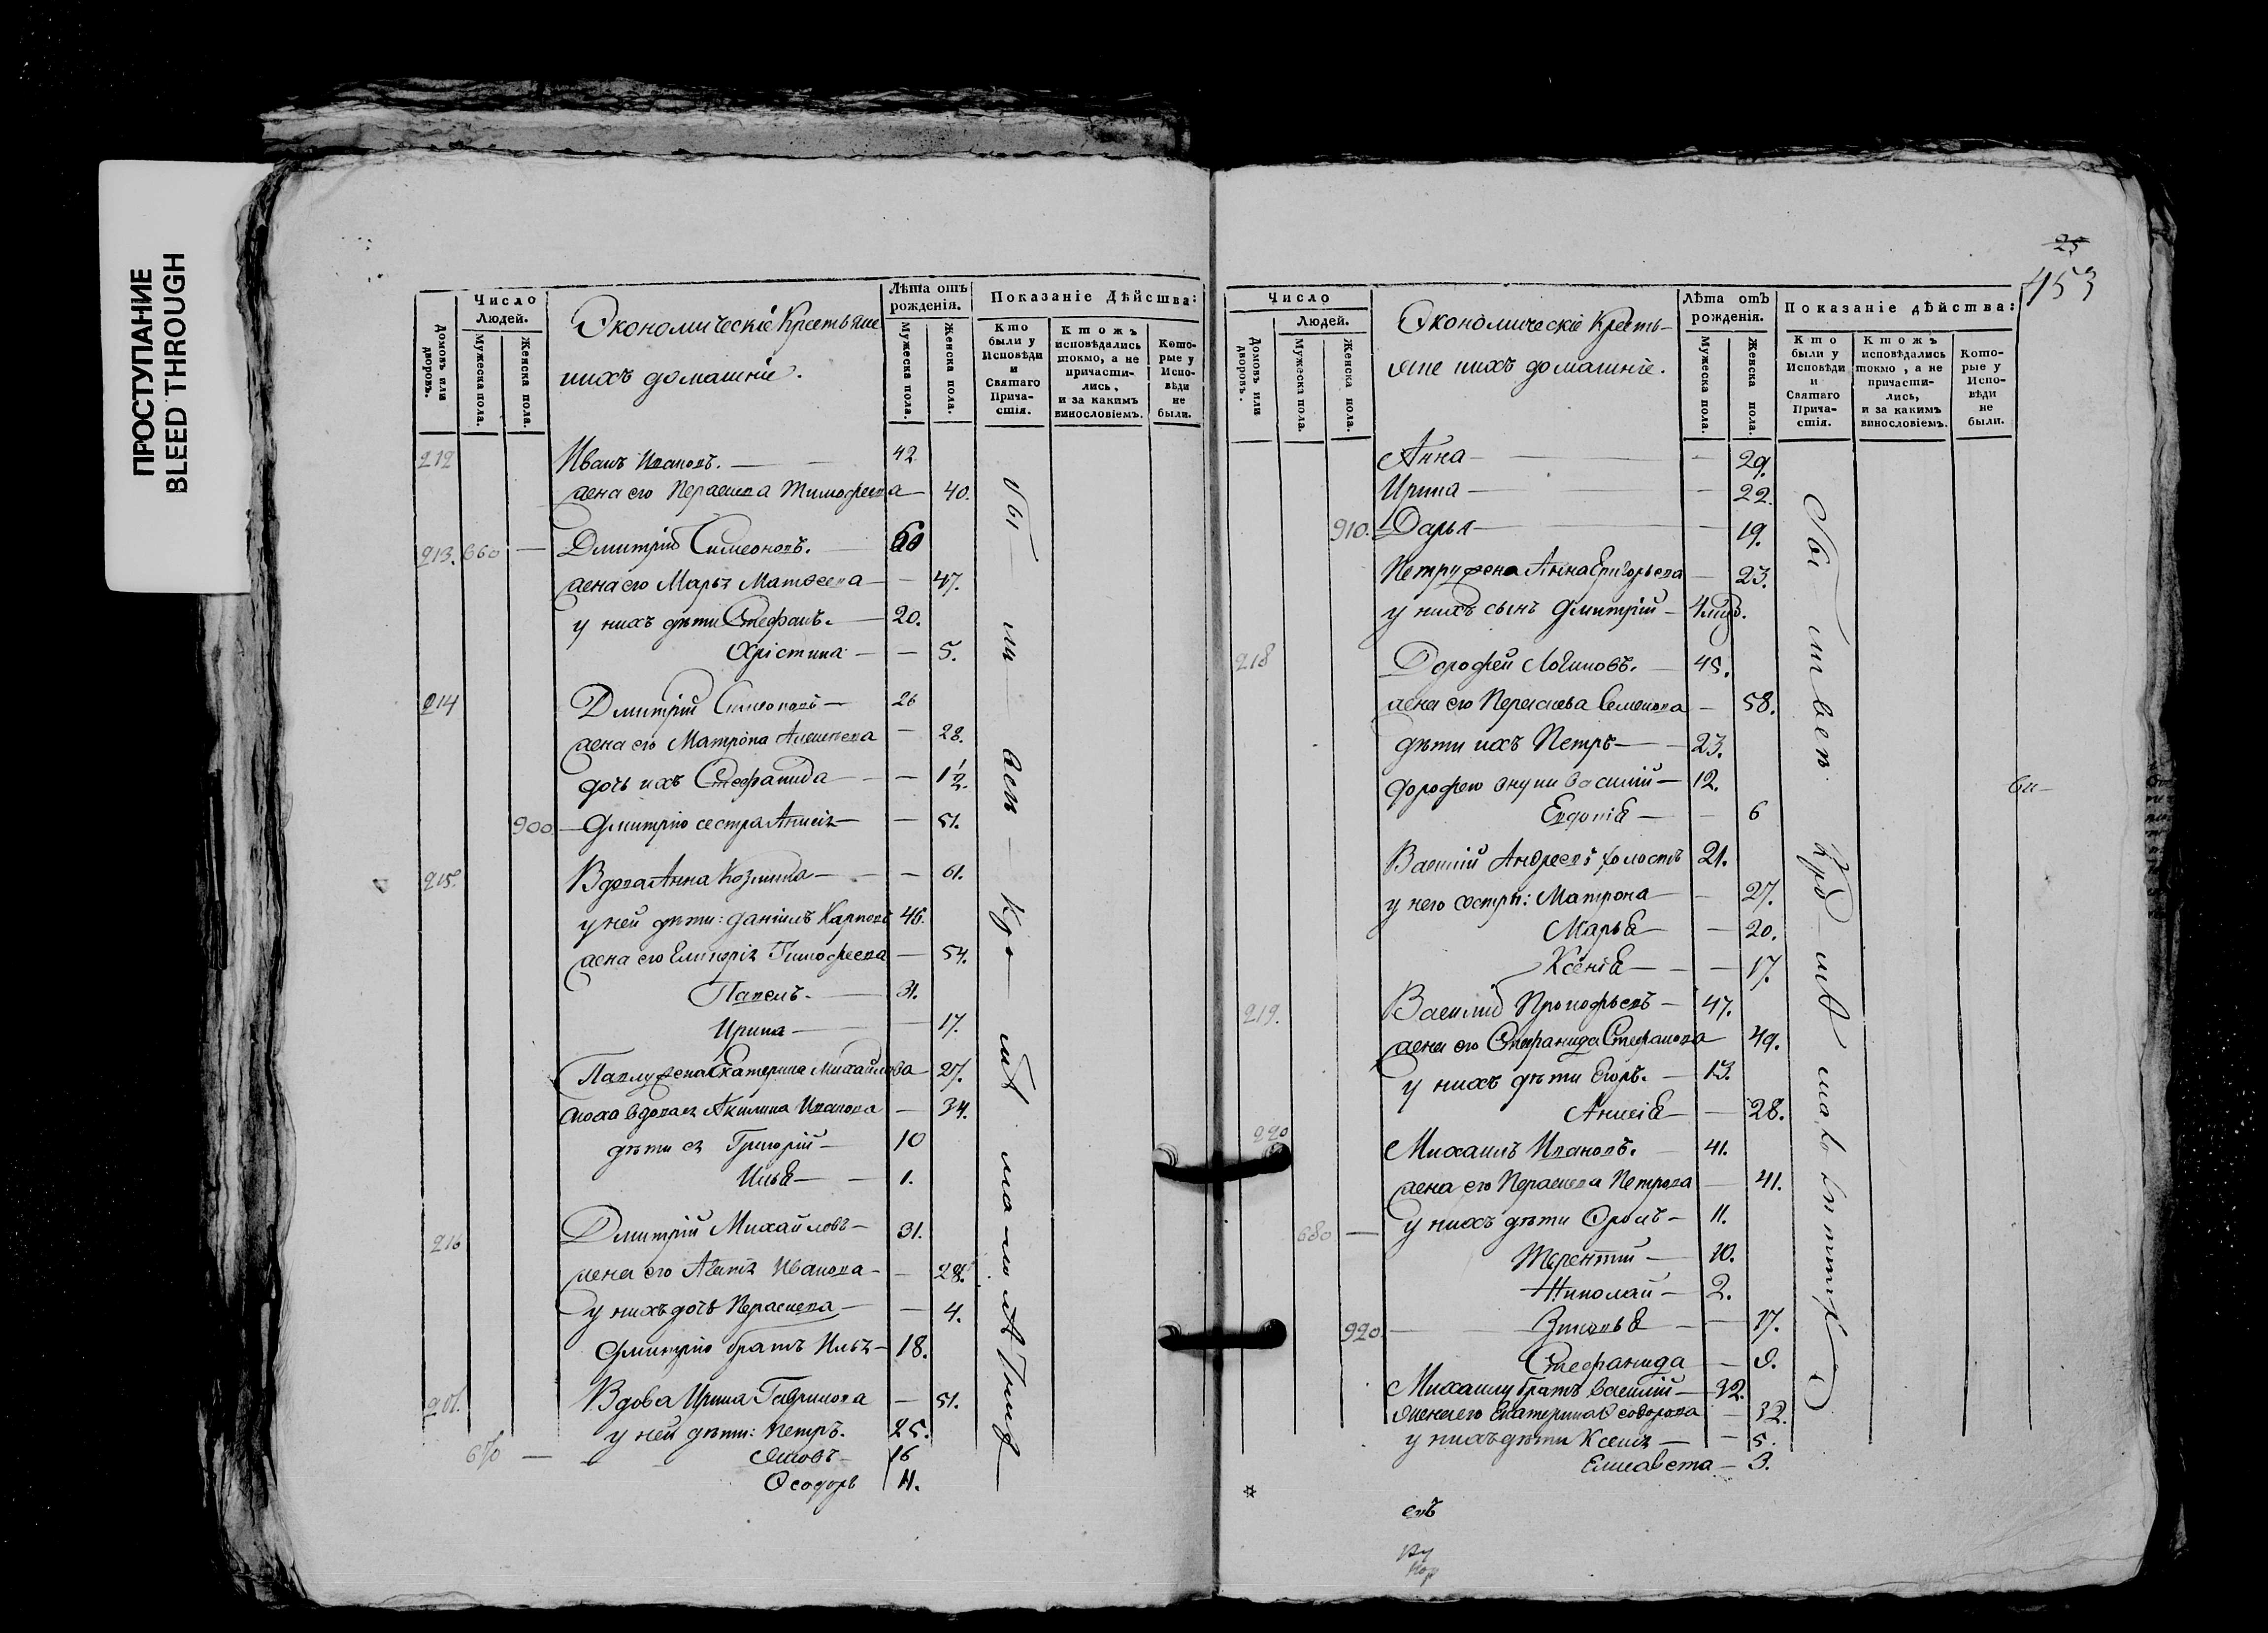 ПРОСТУПАНИЕ
BLEED THROUGH
Число Людей.
Домовъ или дворовъ.
Мужеска пола.
Женска пола.
Экономическіе Крестьяне
ихъ домашніе.
Лѣта отъ рожденія.
Мужеска пола.
Женска пола.
Показаніе Дѣйства:
Кто были у Исповѣди и Святаго Прича-стія.
Ктожъ исповѣдались токмо, а не причасти-лись, и за какимъ винословіемъ.
Кото-рые у Испо-вѣди не были.
212 Иванъ Ивановъ. — 42
жена его Параскева Тимофеева — 40.
213. 660 — Димитрій Симеоновъ. 60
жена его Марья Матѳеева — 47.
у нихъ дѣти Стефанъ. — 20.
Христина — 5.
214 Димитрій Симеоновъ — 26
жена его Матрона Алексѣева — 28.
дочь ихъ Стефанида — 1½.
900. — Дмитрію сестра Анисія — 51.
215. Вдова Анна Козмина — 61.
у ней дѣти: Даніилъ Карповъ 46.
жена его Тимофеева — 54.
Павелъ. — 31.
Ирина — 17.
Павлу жена Екатерина Михайлова — 27.
сноха вдовая Акилина Иванова — 34.
дѣти ея Григорій — 10
Илья — 1.
216 Димитрій Михайловъ — 31.
жена его Агапія Иванова — 28.
у нихъ дочь Параскева — 4.
Дмитрію братъ Илья — 18.
Вдова Ирина Гавриилова — 51.
у ней дѣти: Петръ. 25.
670 — Яковъ — 16
Ѳеодоръ 11.
25
153
Число Людей.
Домовъ или дворовъ.
Мужеска пола.
Женска пола.
Экономическіе Кресть-
яне ихъ домашніе.
Лѣта отъ рожденія.
Мужеска пола.
Женска пола.
Показаніе дѣйства:
Кто были у Исповѣди и Святаго Прича-стія.
Ктожъ исповѣдались токмо, а не причасти-лись, и за какимъ винословіемъ.
Кото-рые у Испо-вѣди не были.
Анна — 29.
Ирина — 22.
910. — Дарья — 19.
Петру жена Анна Григорьева — 23.
у нихъ сынъ Димитрій —
218 Дорофей Логиновъ. — 45.
жена его Параскева Семенова — 58.
дѣти ихъ Петръ — 23.
Дорофею внуки Василій — 12.
Евдокія — 6
Василій Андреевъ холостъ 21.
у него сестры: Матрона — 27.
Марья — 20.
Ксенія — 17.
219. Василій Прокофьевъ — 47.
жена его Стефанида Стефанова 49.
у нихъ дѣти Егоръ. — 13.
Анисія — 28.
220 Михаилъ Ивановъ. — 41.
жена его Параскева Петрова — 41.
680 — у нихъ дѣти Фролъ — 11.
Терентій — 10.
Николай — 2.
920. — Зиновья — 17.
Стефанида — 9.
Михаилу братъ Василій — 32.
жена его Екатерина Ѳеодорова — 32.
у нихъ дѣти Ксенія — 5.
Елисавета — 3.